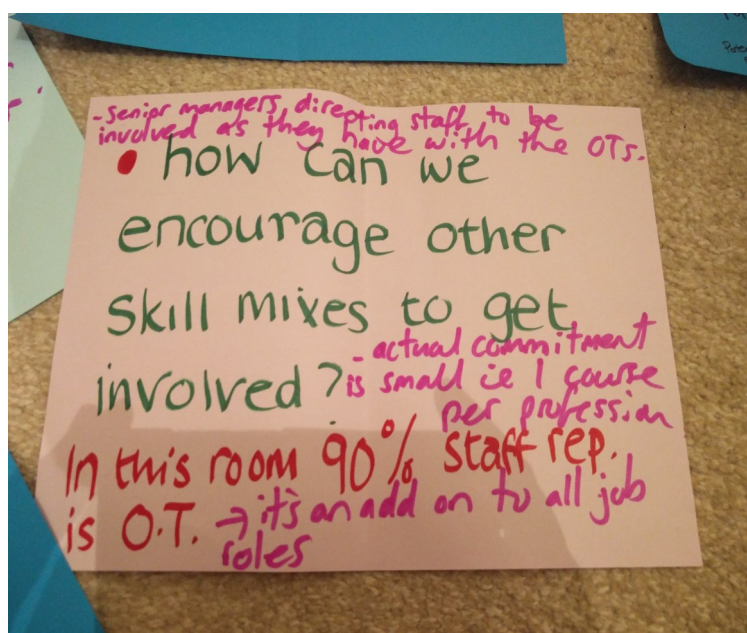 - Senior managers directing staff to be
involved as they have with the OTs.
• how can we
encourage other
skill mixes to get
involved?
- actual commitment
is small ie 1 course
per profession
In this room 90% staff rep.
is O.T. → it's an add on to all job
roles